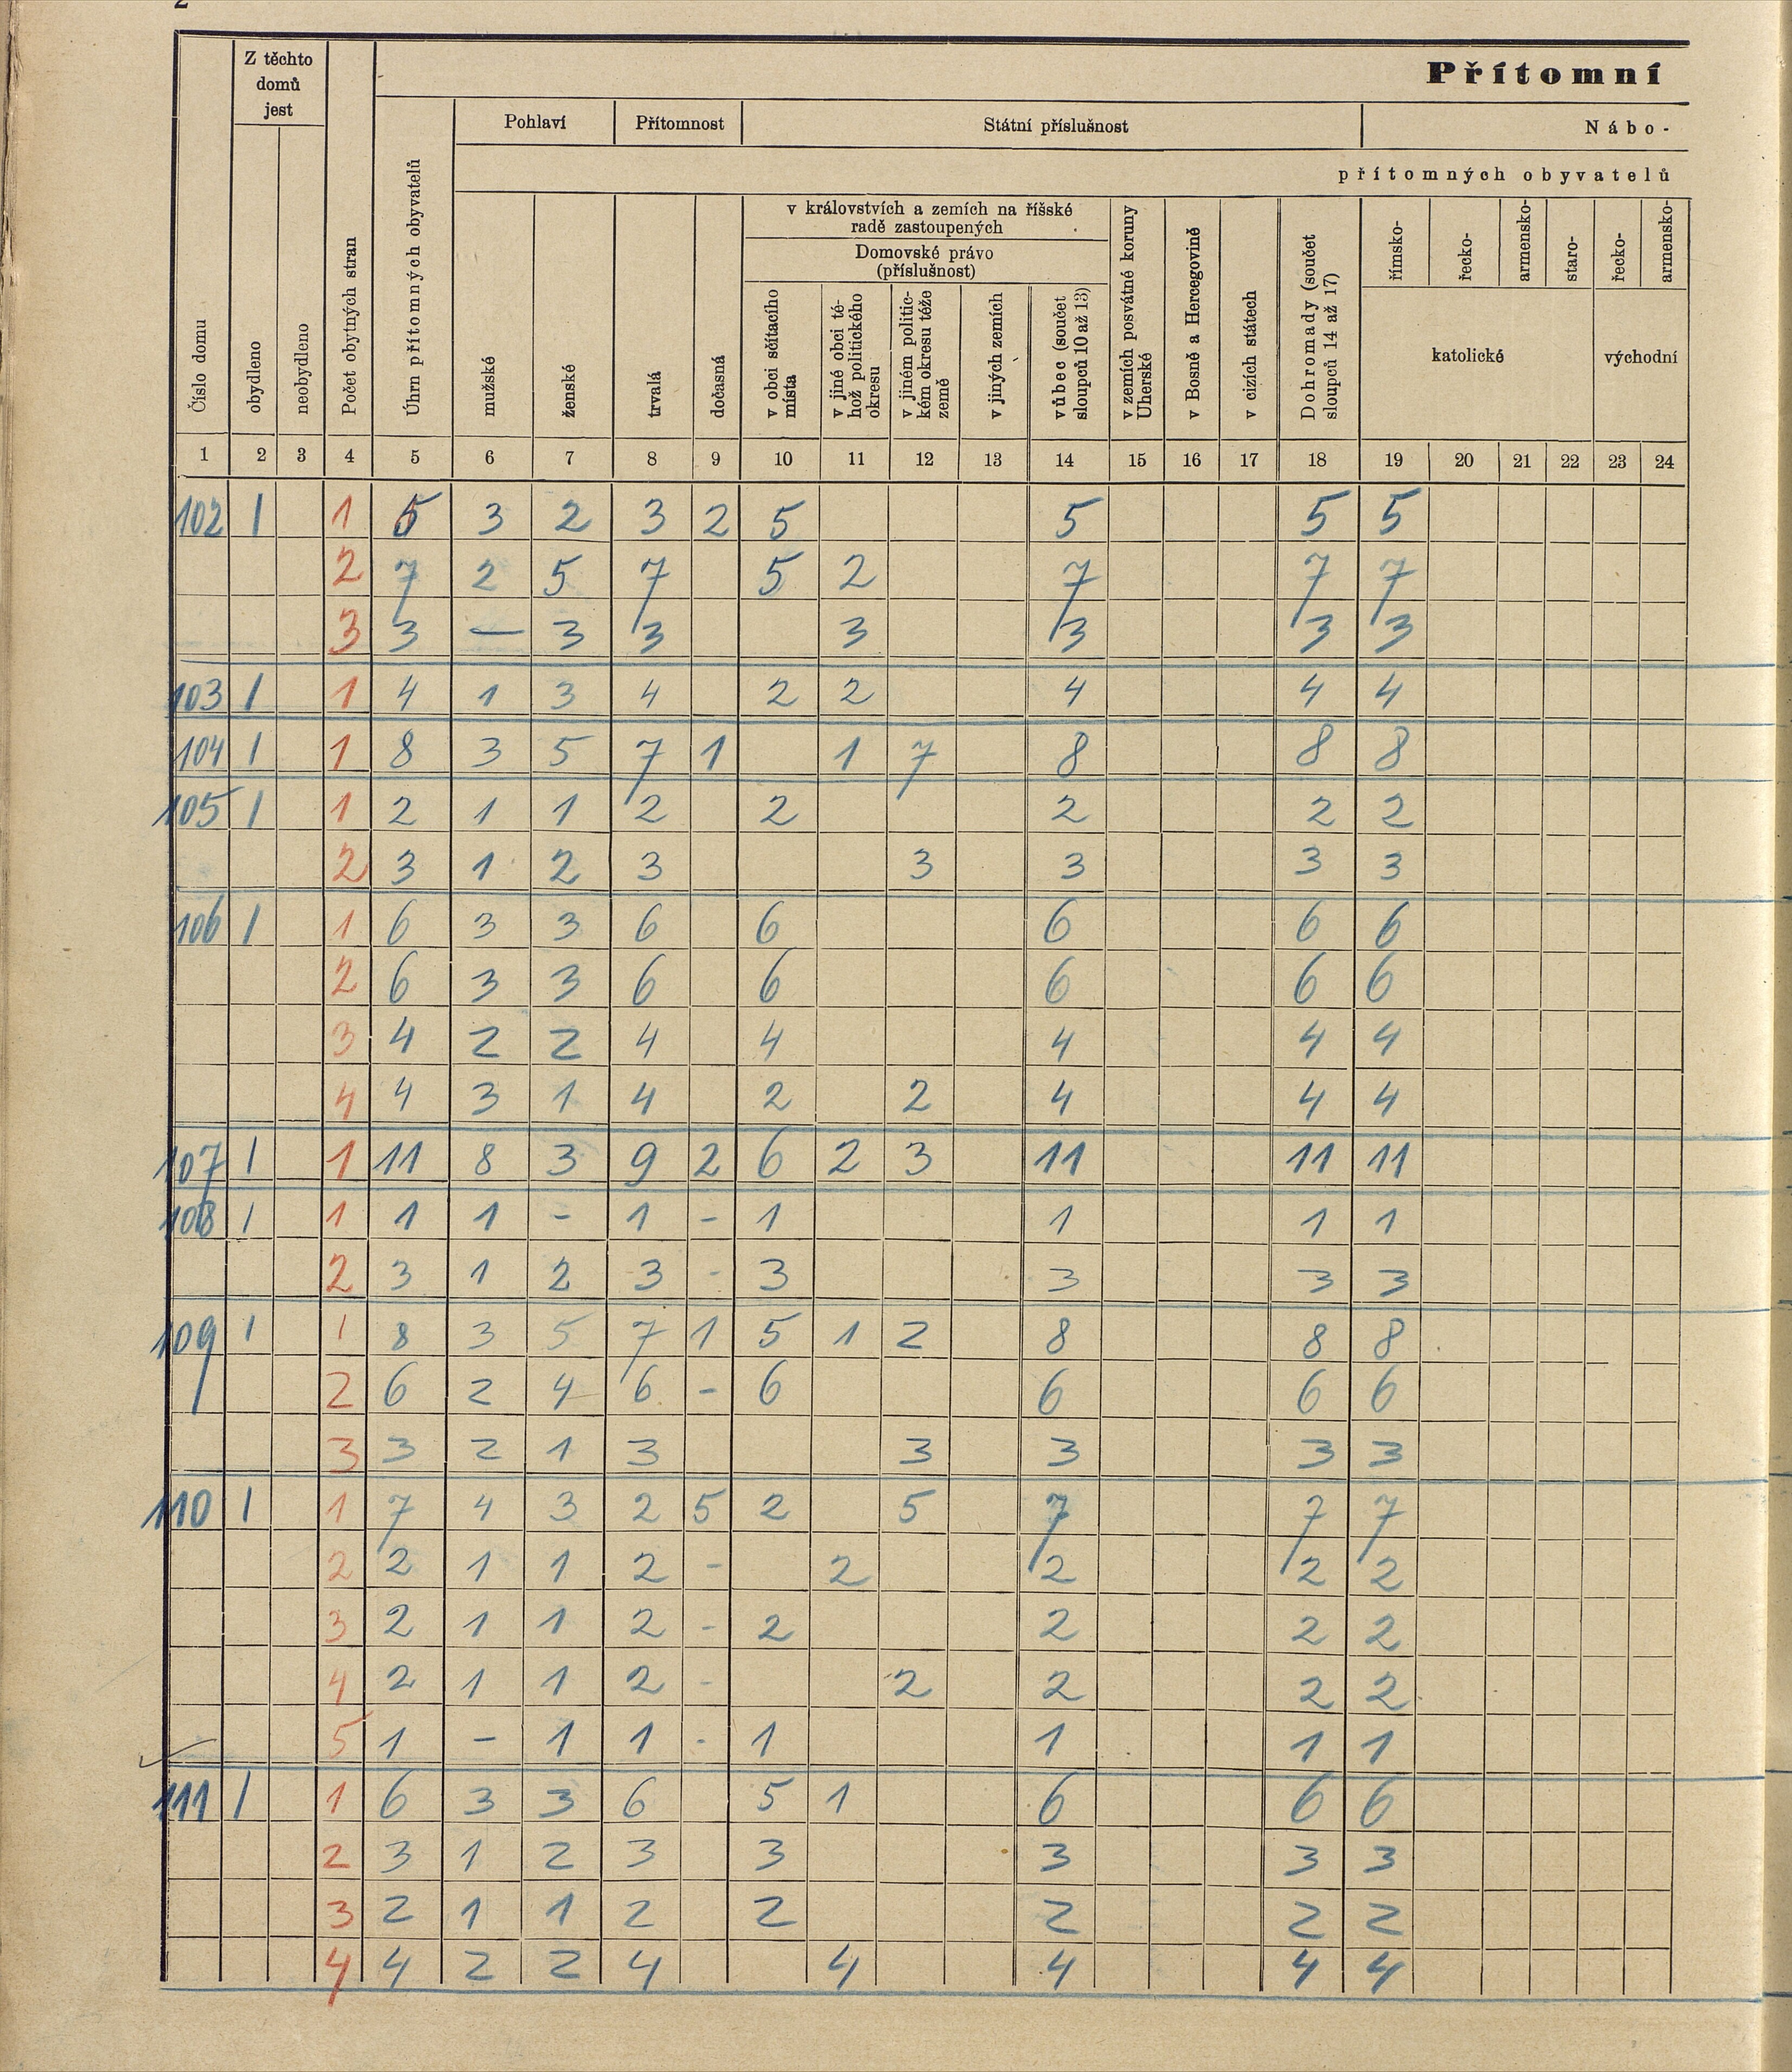 2
Přítomní
Z těchto domů jest
Pohlaví Přítomnost Státní příslušnost Nábo-
přítomných obyvatelů
v královstvích a zemích na říšské
radě zastoupených
Domovské právo
(příslušnost)
Číslo domu
obydleno
neobydleno
Počet obytných stran
Úhrn přítomných obyvatelů
mužské
ženské
trvalá
dočasná
v obci sčítacího místa
v jiné obci téhož politického okresu
v jiném politickém okresu téže země
v jiných zemích
vůbec (součet sloupců 10 až 13)
v zemích posvátné koruny Uherské
v Bosně a Hercegovině
v cizích státech
Dohromady (součet sloupců 14 až 17)
římsko-
řecko-
armensko-
staro-
katolické
řecko-
armensko-
východní
1 2 3 4 5 6 7 8 9 10 11 12 13 14 15 16 17 18 19 20 21 22 23 24
102 1 1 5 3 2 3 2 5 5 5 5
2 7 2 5 7 5 2 7 7 7
3 3 — 3 3 3 3 3 3
103 1 1 4 1 3 4 2 2 4 4 4
104 1 1 8 3 5 7 1 1 7 8 8 8
105 1 1 2 1 1 2 2 2 2 2
2 3 1 2 3 3 3 3 3
106 1 1 6 3 3 6 6 6 6 6
2 6 3 3 6 6 6 6 6
3 4 2 2 4 4 4 4 4
4 4 3 1 4 2 2 4 4 4
107 1 1 11 8 3 9 2 6 2 3 11 11 11
108 1 1 1 1 - 1 - 1 1 1 1
2 3 1 2 3 - 3 3 3 3
109 1 1 8 3 5 7 1 5 1 2 8 8 8
2 6 2 4 6 - 6 6 6 6
3 3 2 1 3 3 3 3 3
110 1 1 7 4 3 2 5 2 5 7 7 7
2 2 1 1 2 - 2 2 2 2
3 2 1 1 2 - 2 2 2 2
4 2 1 1 2 - 2 2 2 2
5 1 - 1 1 - 1 1 1 1
111 1 1 6 3 3 6 5 1 6 6 6
2 3 1 2 3 3 3 3 3
3 2 1 1 2 2 2 2 2
4 4 2 2 4 4 4 4 4